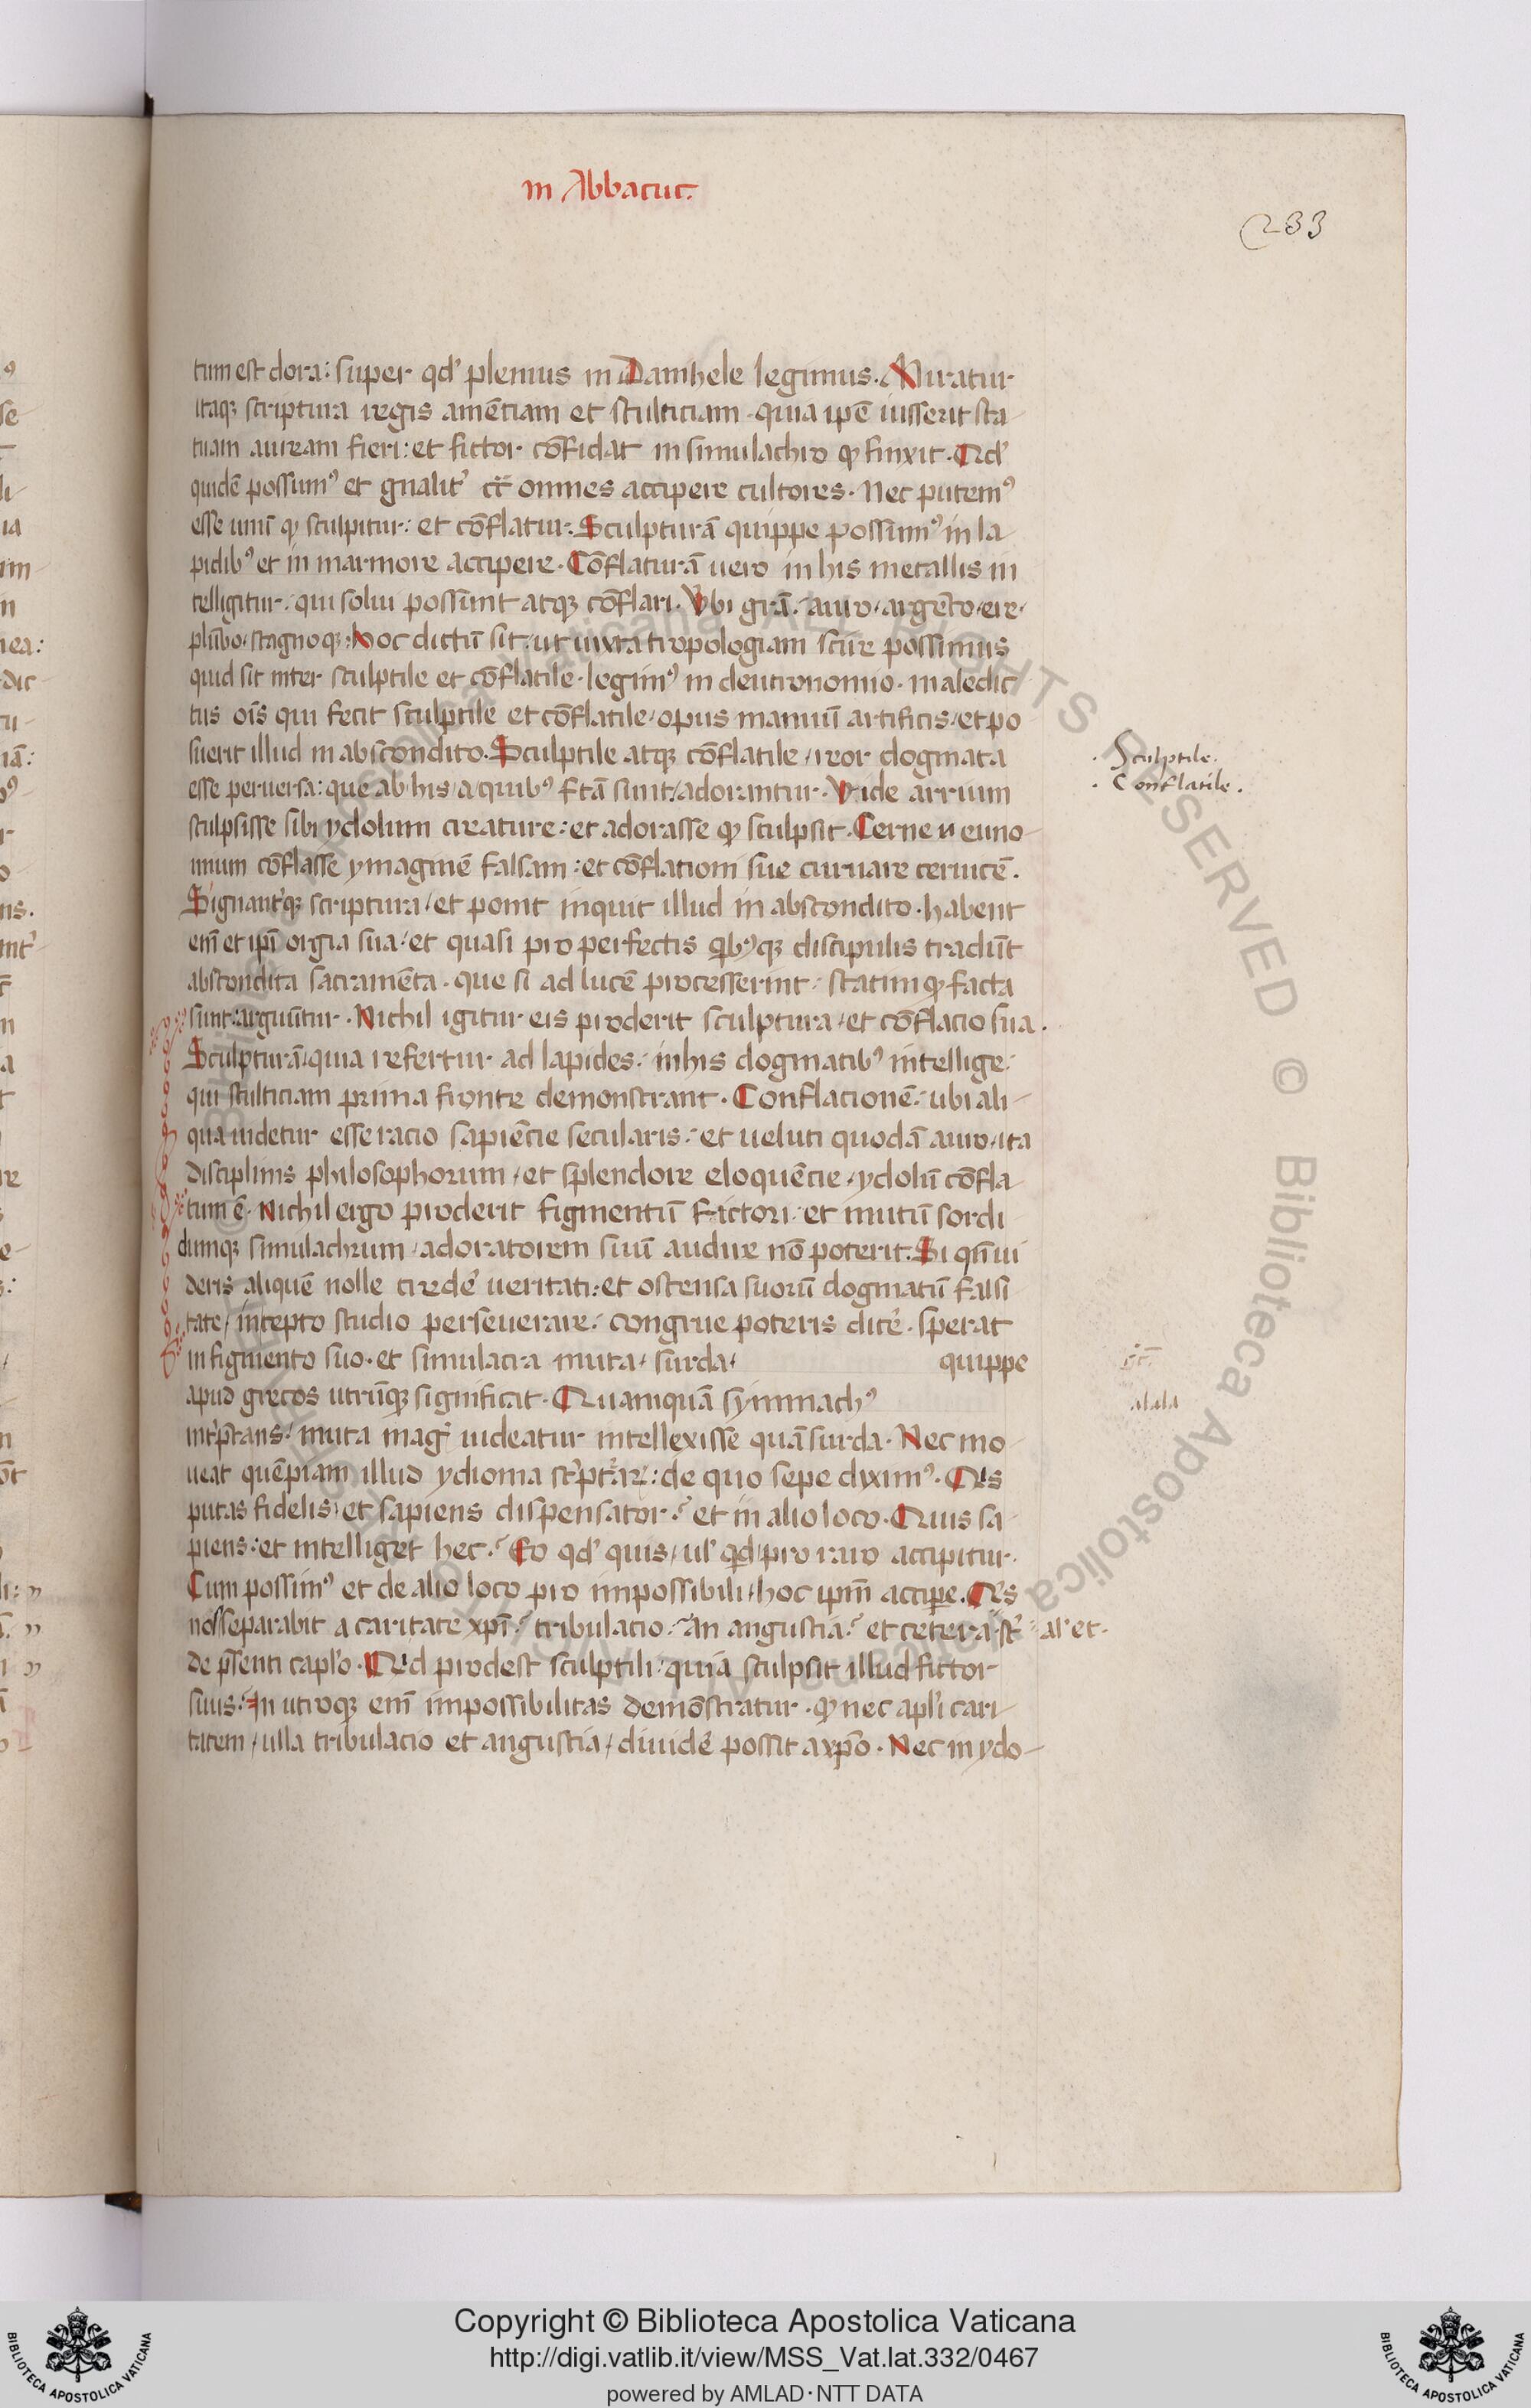 in Abbacuc.
233
tum est dora: super qd' plenius in Danihele legimus. Miratur
itaqꝫ scriptura regis amẽtiam et stulticiam. quia ipẽ iusserit sta-
tuam auream fieri: et fictor cõfidat in simulachro qꝫ finxit. Qd'
quidẽ possumꝰ et gnalit' cõt̃ omnes accipere cultores. Nec putemꝰ
esse unũ qꝫ sculpitur: et cõflatur. Sculpturã quippe possumꝰ in la-
pidibꝰ et in marmore accipere. Cõflaturã uero in his metallis in
telligitur: qui solui possunt atqꝫ cõflari. Vbi grã. auro/argẽto/ere/
plũbo/stagnoqꝫ. hoc dictũ sit: ut iuxta tropologiam scire possimus
quid sit inter sculptile et cõflatile. legimꝰ in deutronomio. maledic
tus oĩs qui fecit sculptile et cõflatile/opus manuũ artificis/et po
suerit illud in abscondito. Sculptile atqꝫ cõflatile/reor dogmata
esse peruersa: que ab his/a quibꝰ fctã sunt/adorantur. Vide arrium
sculpsisse sibi ydolum creature: et adorasse qꝫ sculpsit. Cerne euno-
mium cõflasse ymaginẽ falsam: et cõflationi sue curuare ceruicẽ.
Signant'qꝫ scriptura/et ponit inquit illud in abscondito. habent
eñi et ipĩ orgia sua/et quasi pro perfectis qibꝰqꝫ discipulis tradũt
abscondita sacramẽta. que si ad lucẽ processerint: statim qꝫ facta
sunt: arguũtur. Nichil igitur eis proderit sculptura/et cõflacio sua.
Sculpturã/quia refertur ad lapides: in his dogmatibꝰ intellige:
qui stulticiam prima fronte demonstrant. Conflacionẽ: ubi ali-
qua uidetur esse racio sapiẽcie secularis: et ueluti quodã auro/ita
disciplinis philosophorum/et splendore eloquẽcie/ydolũ cõfla
tum ẽ. Nichil ergo proderit figmentũ fictori: et mutũ sordi
dumqꝫ simulachrum/adoratorem suũ audire nõ poterit. Si qñ ui
deris aliquẽ nolle credé ueritati: et ostensa suorũ dogmatũ falsi
tate/incepto studio perseuerare: congrue poteris dicé. sperat
in figmento suo. et simulacra muta/surda/ quippe
apud grecos utrũqꝫ significat. Quamquã symmachꝰ
int'p̃tans/muta mag' uideatur intellexisse quã surda. Nec mo-
ueat quẽpiam illud ydioma st'pt'ar̃: de quo sepe diximꝰ. Qis
putas fidelis/et sapiens dispensator? et in alio loco. Quis sa-
piens: et intelliget hec? Eo qd' quis/ul' qid/pro raro accipitur.
Cum possimꝰ et de alio loco pro impossibili/hoc ipm̃ accipe. Qis
nos separabit a caritate xpĩ? tribulacio? An angustia? et cetera. st' al' et.
de pñsenti caplo. Qid prodest sculptili/quia sculpsit illud fictor
suus? In utroqꝫ eñi impossibilitas demõstratur. qꝫ nec apl'i cari-
tatem/ulla tribulacio et angustia/diuidé possit a xpõ. Nec in ydo-
Sculptile.
Conflatile.
alala
Copyright © Biblioteca Apostolica Vaticana
http://digi.vatlib.it/view/MSS_Vat.lat.332/0467
powered by AMLAD·NTT DATA
BIBLIOTECA APOSTOLICA VATICANA
BIBLIOTECA APOSTOLICA VATICANA